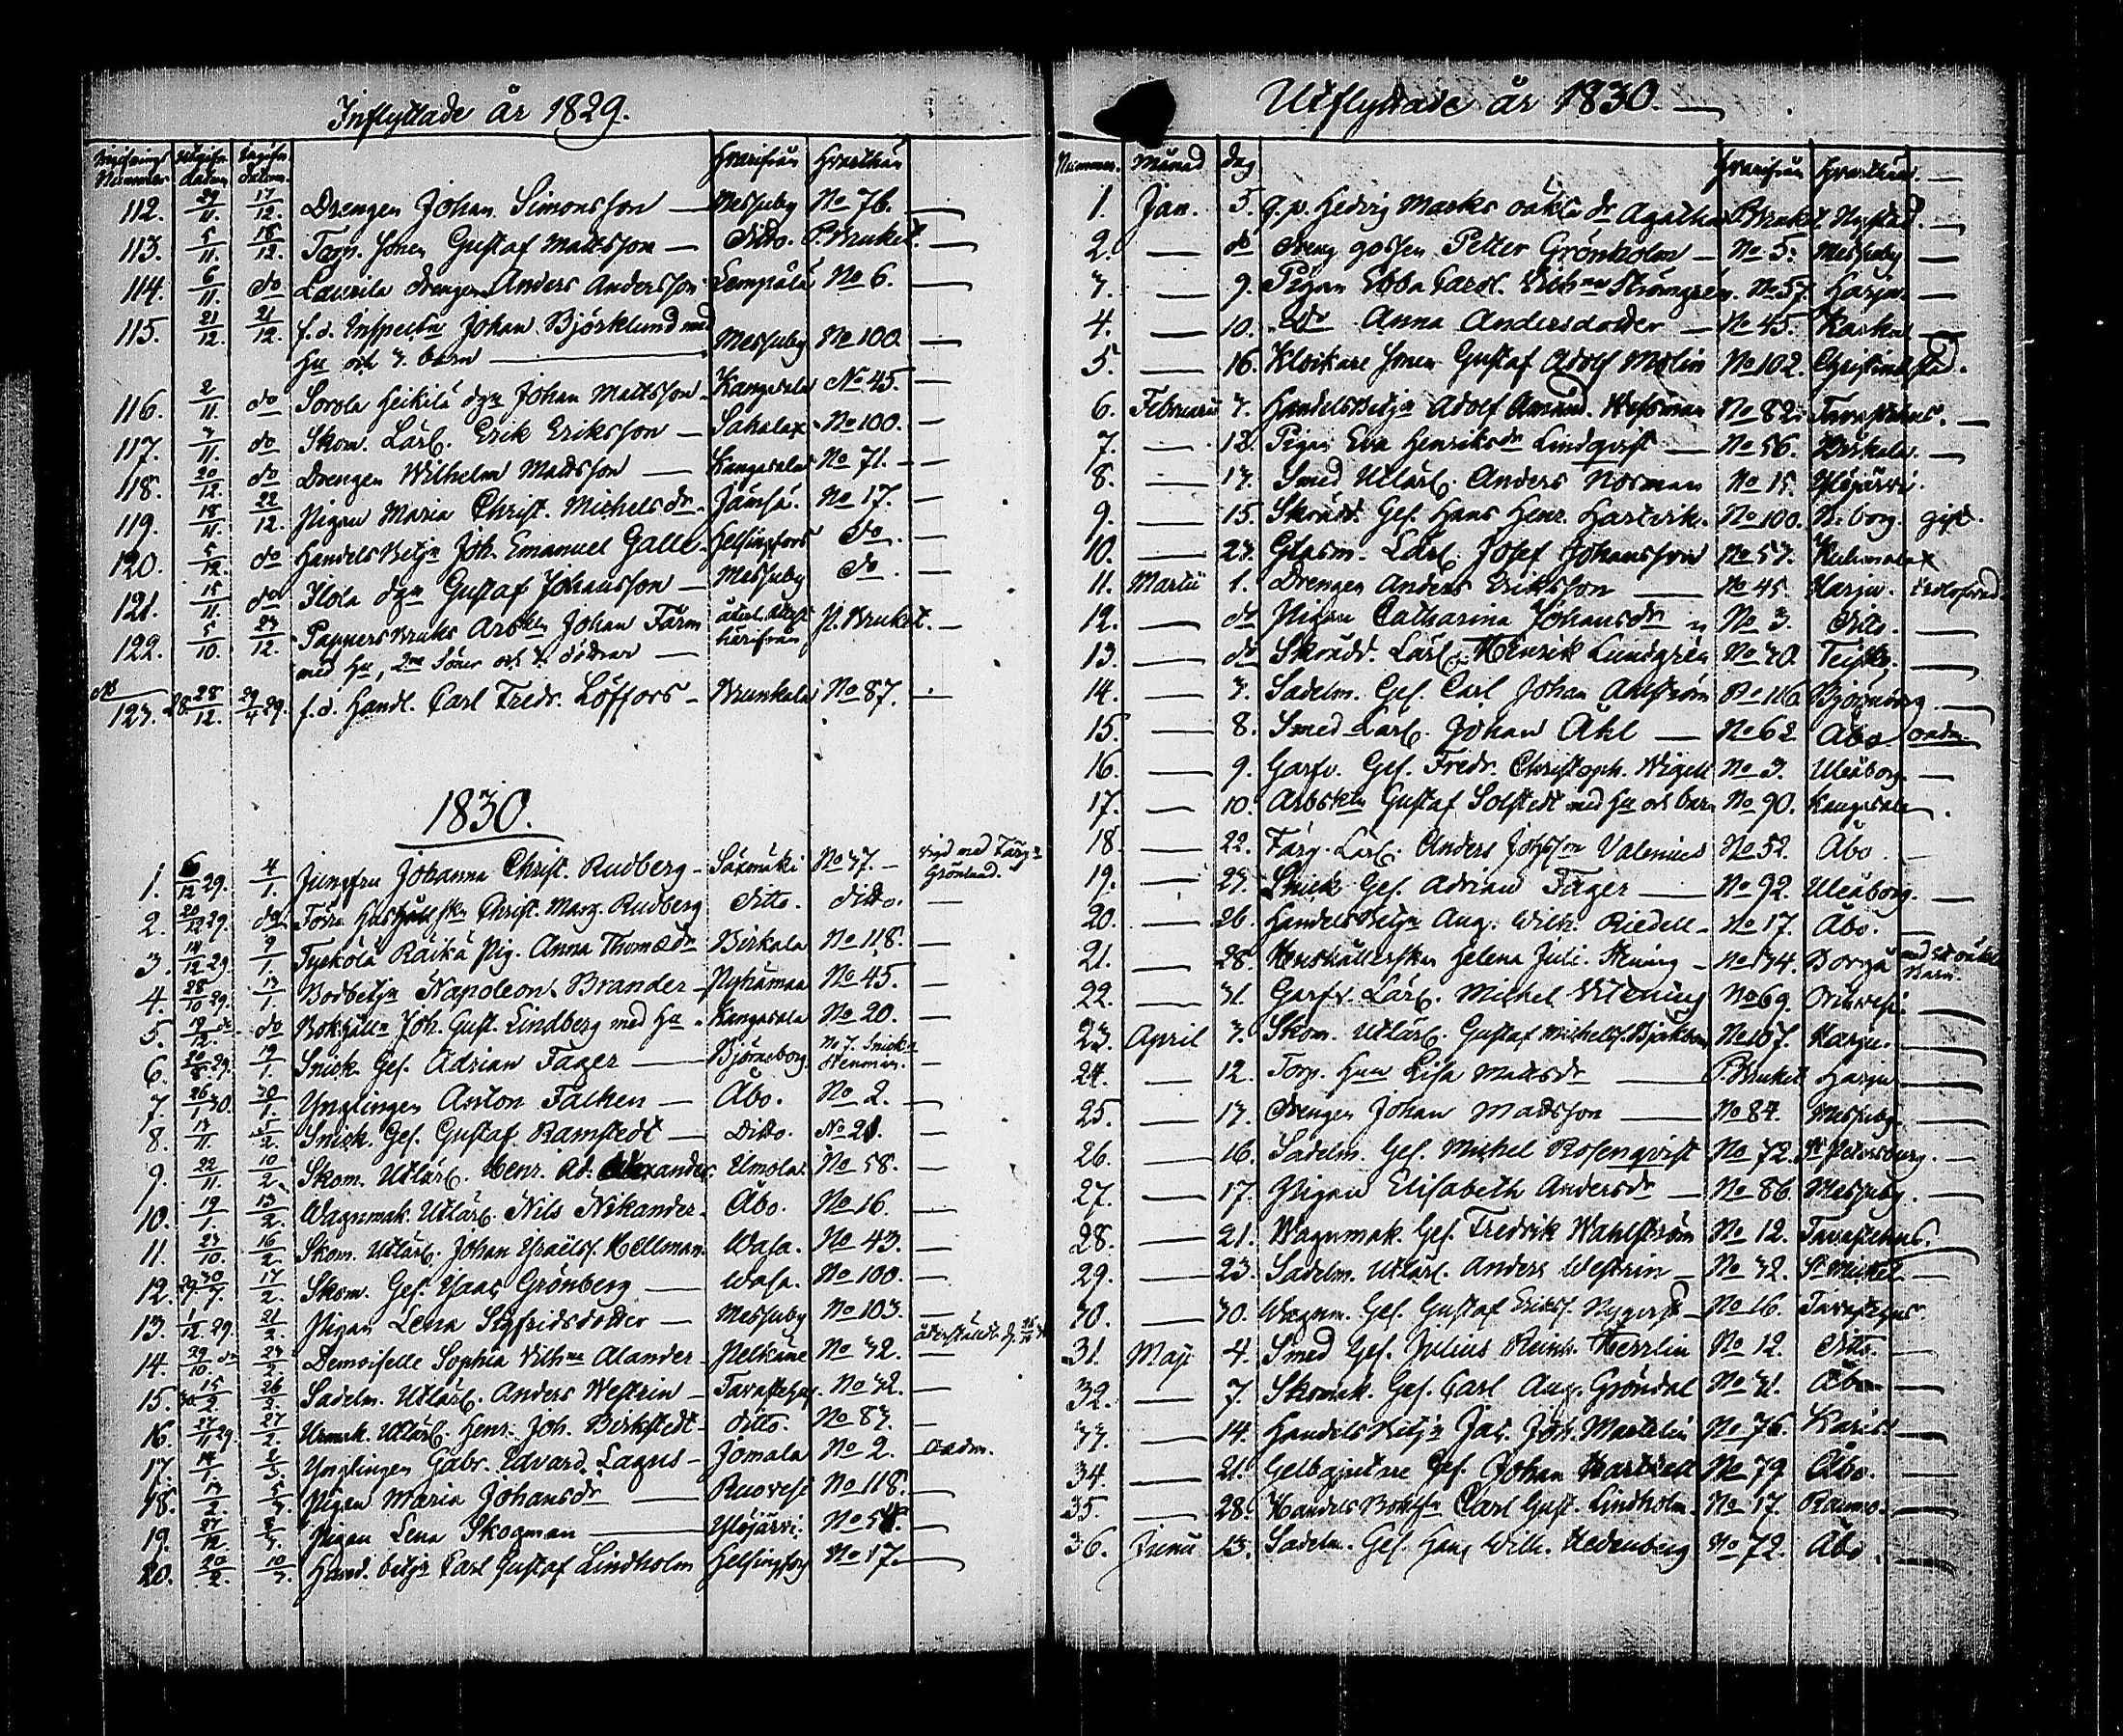 Inflyttade år 1829.
Nummer datum datum. Hvarifrån Hvarthän
112. 29/11. 17/12. Drengen Johan Simonsson — Messuby No 76. —
113. 5/11. 18/12. Torp. Sonen Gustaf Mattsson — Ditto. P. Bruket. —
114. 6/11. do Laurila drengen Anders Andersson Lempälä No 6. —
115. 21/12. 21/12. f. d. Inspectn Johan Björklund med Messuby No 100 —
hu och 3. barn —
116. 2/11. do Sorola Heikilä dgn Johan Mattsson Kangasala No 45. —
117. 3/11. do Skom. Lärl. Erik Eriksson — Sahalax No 100. —
118. 20/12. do Drengen Wilhelm Mattsson — Kangasala No 71. —
119. 18/11. 22/12. Pigan Maria Christ. Michelsdr Jämsä. No 17. —
120. 5/12. do Handels Betjn Joh. Emanuel Galle Helsingfors do. —
121. 15/11. do Ilola dgn Gustaf Johansson — Messuby do. —
122. 5/10. 23/12. Pappersbruks Arbkln Johan Färm härifrån P. Bruket. —
med hu, 2ne söner och döttrar —
123. 28. 28/12. 29/4 29. f. d. Handl. Carl Fredr. Löffors — No 87. —
1830.
1. 6/12 29. 4/1. Jungfru Johanna Christ. Rudberg — Säxmäki No 37. — med Färgn
Grönlund.
2. 20/12 29. do Hushållskn Christ. Marg. Rudberg ditto. ditto. —
3. 14/12 29. 9/1. Räikä Pig. Anna Thomædr Birkala No 118. —
4. 28/10 29. 13/1. Bodbetjn Napoleon Brander — Nykämaa No 45. —
5. 19/12. do do Bokhålln Joh. Gust. Lindberg med hu. Kangasala No 20. —
6. 20/8 29. 19/1. Snick. Ges. Adrian Fager — Björneborg. No 7. Snick.
Stenman. —
7. 26/1 30. 30/1. Ynglingen Anton Falken — Åbo. No 2. —
8. 13/11. 5/2. Snick. Ges. Gustaf Ramstedt — Ditto. No 21. —
9. 22/11. 10/2. Skom. Utlärl. Henr. Ad. Alexander. No 58. —
10. 19/1. 13/2. Wagnmak. Utlärl. Nils Nikander. Åbo. No 16. —
11. 23/10. 16/2. Skom. Utlärl. Johan Israëlss. Hellman. Wasa. No 43. —
12. 29. 30/7. 17/2. Skom. Ges. Isaac Grönberg — Wasa. No 100. —
13. 1/12. 29. 21/2. Pigan Lena Sigfridsdotter — Messuby No 103. —
14. 29/10. do 23/2. Demoiselle Sophia Vilhna Alander — Pelkäne No 32. —
15. 30. 15/2. 26/2. Sadelm. Utlärl. Anders Westrin — Tavastehus. No 32. —
16. 24/11 29. 27/2. Urmak. Utlärl. Henr. Joh. Birkstedt — ditto. No 83. —
17. 14/1. 2/3. Ynglingen Gabr. Edvard Lagus — Jomala No 2. oadm.
18. 13/2. 5/3. Pigan Maria Johansdr — Ruovesi No 118. —
19. 27/12. 8/3. Pigan Lena Skogman — Ylöjärvi. —
20. 20/2. 10/3. Hand. betjn Carl Gustaf Lindholm Helsingfors No 17. —
Utflyttade år 1830. —
Nummer. Månad dag Hvarifrån Hvarthän. —
1. Jan. 5. q. p. Hedvig Marks oäkta dr Agatha P. Bruket. Nystad. —
2. — do dreng gossen Petter Grönholm — No 5. Messuby —
3. — 9. Pigan Ebba Carol. Strömgrén. No 57. Harju. —
4. — 10. Anna Andersdotter — No 45. Karku —
5. — 16. Klockare Sonen Gustaf Adolf Molin No 102. Christinestad.
6. Februarii 3. Handels Betjn Adolf Amand. Wessman No 82. Tavastehus. —
7. — 12. Pigan Eva Henriksdr Lindqvist — No 56. Birkala. —
8. — 13. Smed Utlärl. Anders Norman No 15. Ylöjärvi.
9. — 15. Skrädd. Ges. Hans Henr. Hartvik. No 100. N. borg. gift.
10. — 23. Glasm. Lärl. Josef Johansson No 57. Kuhmalax
11. Martii 1. Drengen Anders Eriksson — No 45. Harju.
12. — do Pigan Catharina Johansdr No 3. ditto. —
13. — do Skrädd. Lärl. Henrik Lundgrén No 30. Teisko. —
14. — 3. Sadelm. Ges. Carl Johan Ahlström No 116. Björneborg. —
15. — 8. Smed Lärl. Johan Åhl — No 62 Åbo oadm.
16. — 9. Garfv. Ges. Fredr. Christoph. Wigell No 3. Uleåborg —
17. — 10. Arbskln Gustaf Solstedt med hu och barn No 90. Kangasala.
18. — 22. Färg. Lärl. Anders Johsson Valenius No 52. Åbo. —
19. — 23. Snick Ges. Adrian Fager — No 92. Uleåborg. —
20. — 26. Handels Betjn Aug. Wilh. Riedell — No 17. Åbo. —
21. — 28. Hushållerskan Helena Juli. Hening — No 34. Borgå med ett oäkta
Barn.
22. — 31. Garfv. Lärl. Michel No 69. Orihvesi. —
23. April 3. Skom. Utlärl. Gustaf Michelss. No 107. Harju. —
24. — 12. Torp. Hun Lisa Mattsdr — P. Bruket Harju —
25. — 13. Drengen Johan Mattsson — No 84. Messuby —
26. — 16. Sadelm. Ges. Michel Rosenqvist No 72. St Petersburg. —
27. — 17. Pigan Elisabeth Andersdr — No 86. Messuby. —
28. — 21. Wagnmak. Ges. Fredrik Wahlström No 12. Tavastehus.
29. — 23. Sadelm. Utlärl. Anders Westrin — No 32. St Michel —
30. — 30. Wagnm. Ges. Gustaf Erikss. No 16. Tavastehus. —
31. Maji 4. Smed Ges. Julius Reinh. Herrlin No 12. Ditto. —
32. — 7. Skomak. Ges. Carl Aug. Gröndal No 31. Åbo —
33. — 14. Handels Betjn Jac. Joh. Martelin No 76. Karis. —
34. — 21. Gelbgjutare Ges. Johan No 79. Åbo. —
35. — 28. Handels Bokhn Carl Gust. Lindholm. No 17. Raumo. —
36. Junii 13. Sadelm. Ges. Hans Wilh. Hedenberg No 72. Åbo. —